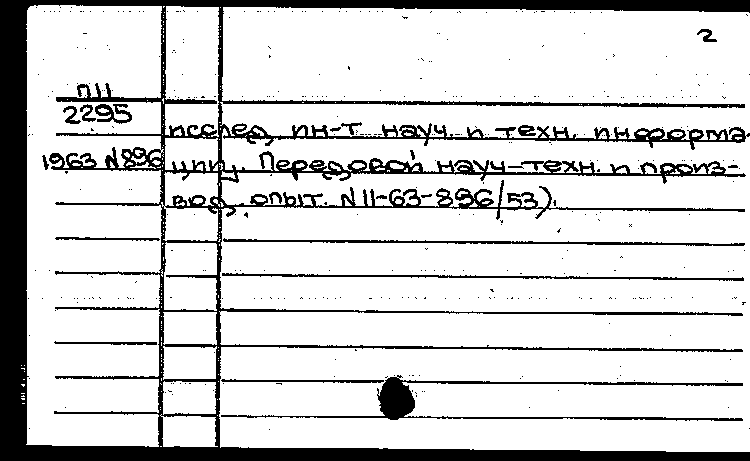 2
П11
2295
исслед. ин-т науч. и техн. информа-
1963 N896 ции. Передовой науч-техн. и произ-
вод. опыт. N11-63-896/53).